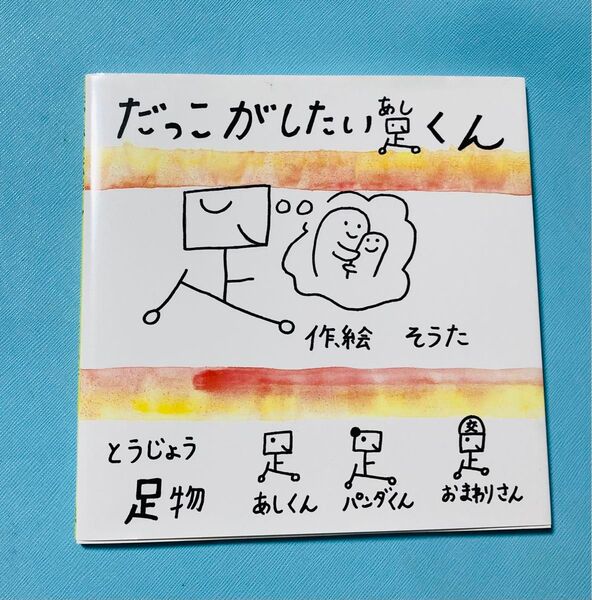 だっこがしたい足くん
あし
作、絵 そうた
とうじょう
足物
あしくん パンダくん おまわりさん
交